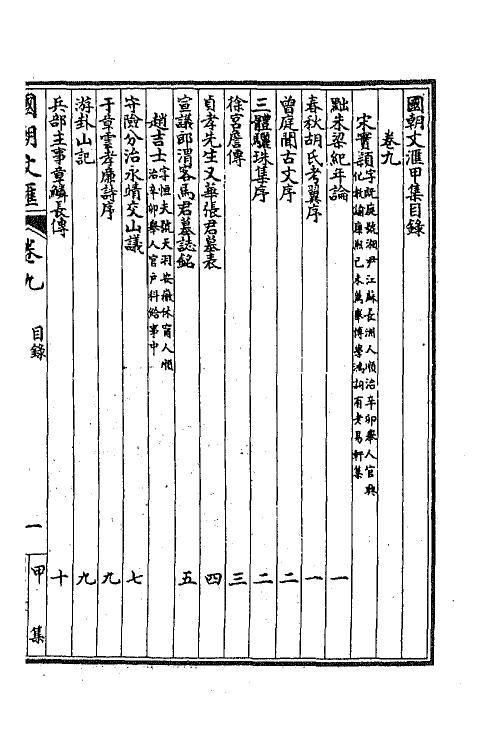 國朝文滙甲集目錄
卷九
宋實穎字既庭號湘尹江蘇長洲人順治辛卯舉人官興化教諭康熙己未薦舉博學鴻詞有老易軒集
黜朱梁紀年論 一
春秋胡氏考翼序 一
曾庭聞古文序 二
三體驪珠集序 二
徐宮詹傳 三
貞孝先生又華張君墓表 四
宣議郎渭客馬君墓誌銘 五
趙吉士字恒夫號天羽安徽休甯人順治辛卯舉人官戶科給事中
守險分治永靖交山議 七
于章雲孝廉詩序 九
游卦山記 九
兵部主事章麟長傳 十
國朝文滙 卷九 目錄 一 甲集